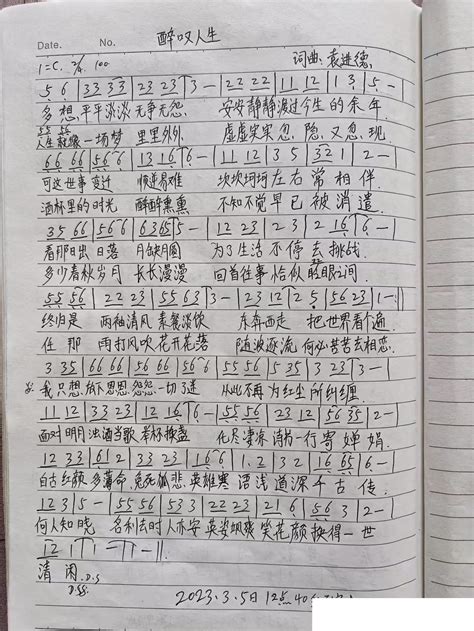 Date. No. 醉叹人生
1=C. 2/4. 100 词曲:袁进德,
5 6 | 33 33 | 23 23 | 3 - | 22 22 | 11 12 | 1 3 | 5 -
多想,平平淡淡无争无怨. 安安静静渡过今生的余年
55 56
人生就像一场梦 里里外外, 虚虚实实忽,隐,又忽,现.
66 66 | 56 6 | 13 16 | 6 - | 11 12 | 3 5 | 32 1 | 2 -
可这世事变迁 顺逆易难 坎坎坷坷左右常相伴.
酒杯里的时光 醉醉熏熏 不知不觉早已被消遣.
35 66 | 56 56 6 | 6 3 65 | 5 - | 12 23 | 2 3 | 2 16 | 6 -
看那日出日落 月缺月圆 为了生活不停去挑战.
多少春秋岁月 长长漫漫 回首往事恰似眨眼之间.
55 56 | 22 23 | 55 63 | 3 - | 23 12 | 2 5 | 56 23 | 1 - :||
终归是 两袖清风素餐淡饭 东奔西走 把世界看个遍.
任那 雨打风吹花开花落 随波逐流何必苦苦去相恋.
3 35 | 66 66 | 56 66 | 56 6 | 55 56 | 5 35 | 34 3 | 3 -
我只想,放下恩恩,怨怨,一切了迷 从此不再为红尘所纠缠.
11 12 | 33 23 | 12 16 | 6 - | 55 56 | 23 23 | 12 35 | 2 -
面对明月浊酒当歌举杯换盏 化尽凄凉诗书一行寄婵娟.
12 33 | 61 2 | 33 23 | 16 6 | 1. 2 | 3 2 | 16 65 | 6 -
自古红颜多薄命,兔死狐悲,英雄寒 语浅道深千古传.
12 3 | 5 - | 55 56 | 53 3 | 22 23 | 21 6 | 56 3 | 2 -
何人知晓 名利去时人亦安英姿飒爽笑花颜换得一世
清闲. D.S
2023.3.5日12点40